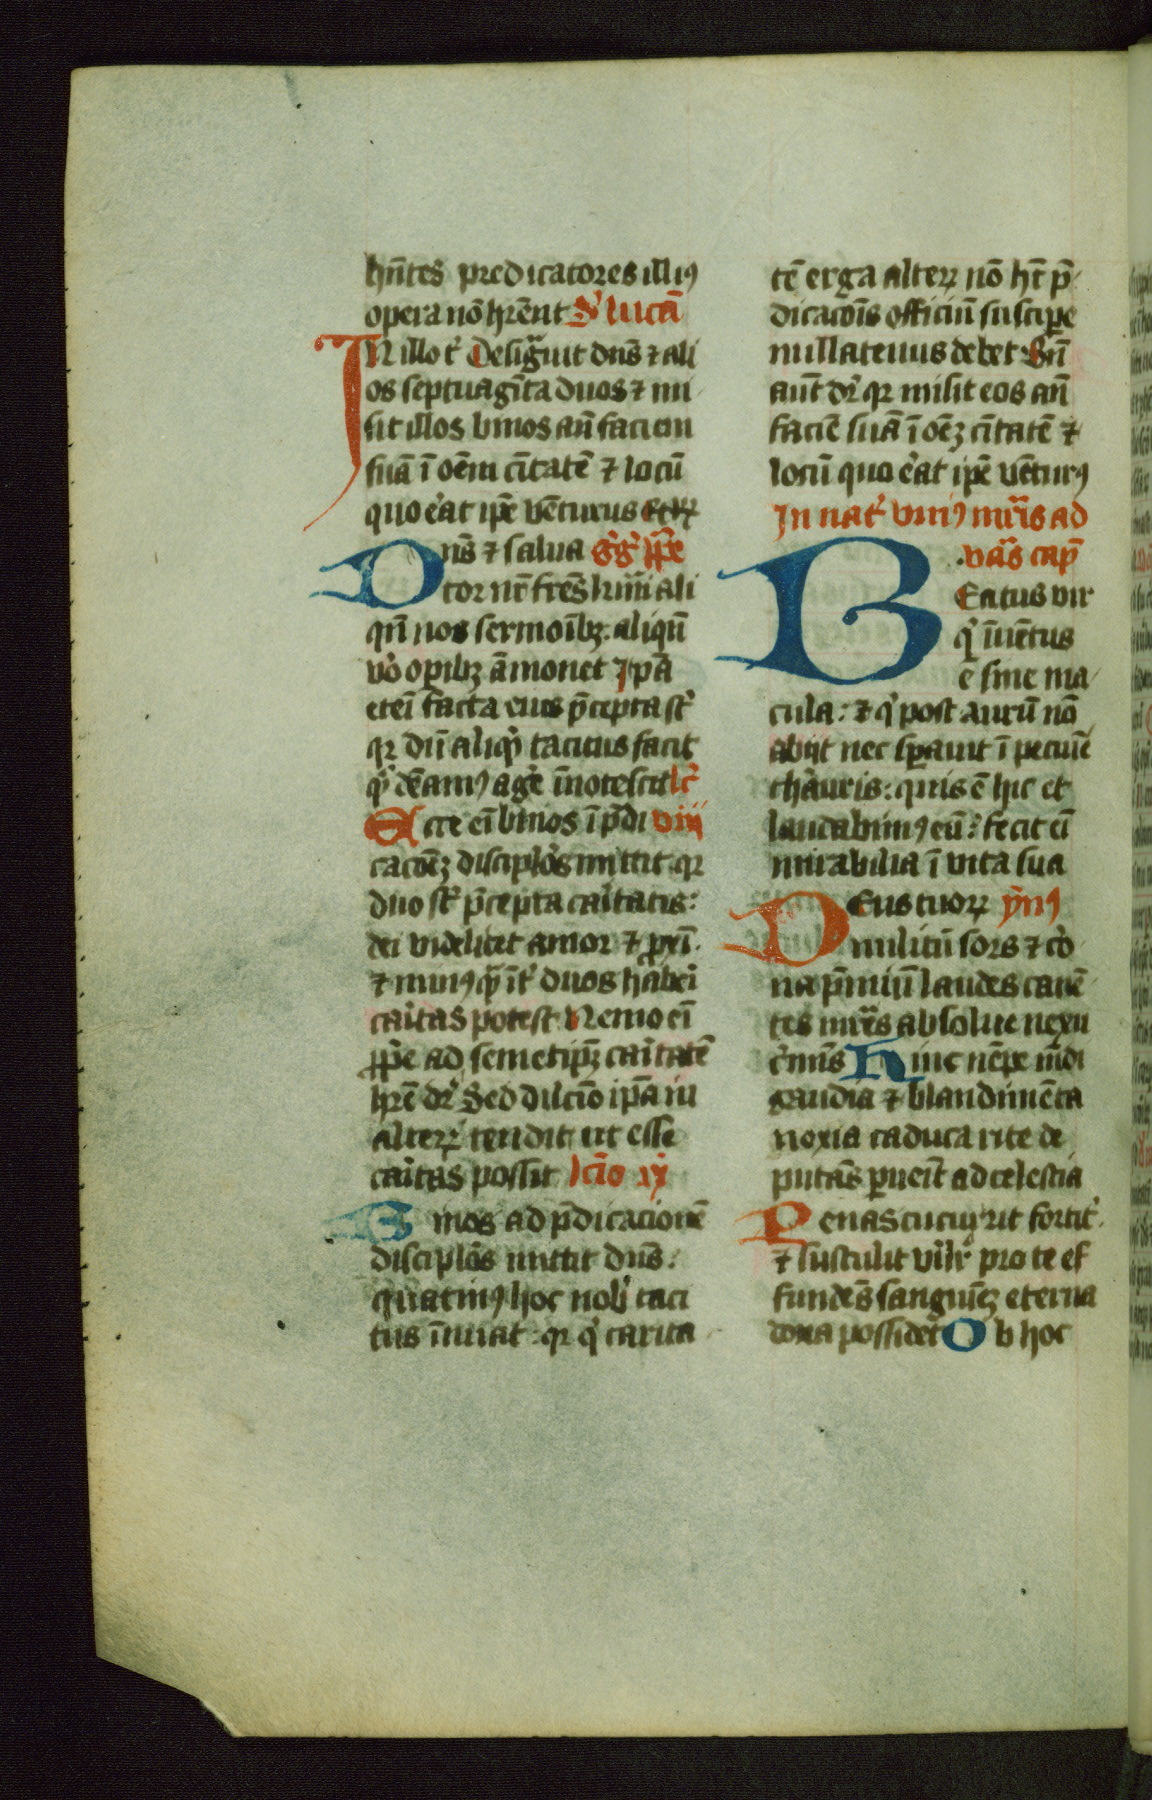 hn̄tes predicatores illiꝰ
opera nō hrēnt S' lucā
IN illo t' Desig̃uit dn̄s ⁊ ali
os septuagīta duos ⁊ mi
sit illos binos an̄ faciem
suā ī oēm cīitatē ⁊ locū
quo e'at ip̄e vēturus
Dn̄s ⁊ salua gͥgͥ ꝑpe
tor nr̄ frēs kr̄mi ali
qn̄ nos sermoībꝫ. aliqn̄
v'o oꝑibꝫ āmonet Ip̄a
eteī facta eius p̄cepta st'
qꝛ dū aliqͥ tacitus facit
qͥ dēamꝰ ag'e īnotescit lc̄
Ecce eī binos ī p̄di viii
cacōeꝫ discipl'os mittit qꝛ
duo st' p̄cepta caͥtatis:
dei videlicet amor ⁊ ꝓxi.
⁊ minꝰ qͣ īt' duos hab'i
caͥtas potest Nemo eī
ꝓpe ad semetipꝫ caͥtatē
hr̄e dr̄ Sed dilcīo ip̄a in
alterꝝ tendit ut esse
caͥtas possit lcīo ix
Binos ad p̄dicacionē
discipl'os mittit dn̄s:
quatinꝰ hoc nob' taci
tus īnuat: qꝛ qͥ carita
tē erga alterꝝ nō ht̄ p̄
dicacōis officiū suscipe
nullatenus debet Bn̄
aut̄ dr̄ qꝛ misit eos an̄
faciē suā ī oēꝫ cīitatē ⁊
locū quo e'at ip̄e vēturꝰ
In nat' uniꝰ mr̄is ad
vas̄ cap̄
BEatus vir
qͥ īuētus
ē sine ma
cula: ⁊ qͥ post aurū nō
abijt nec sꝑauit ī pecuīe
th'auris: quis ē hic et
laudabimꝰ eū: fecit eī
mirabilia ī vita sua
DEus tuoꝝ ym̄ꝰ
militū sors ⁊ co'
na p̄miū laudes canē
tes mr̄is absolue nexu
c'mīs Hinc nēpe mūdi
gaudia ⁊ blandimēta
noxia caduca rite de
putās ꝑueīt ad celestia
Penas cucurrit fortit'
⁊ sustulit vi'lr' pro te ef
fundēs sanguīeꝫ eterna
dona possidet Ob hoc